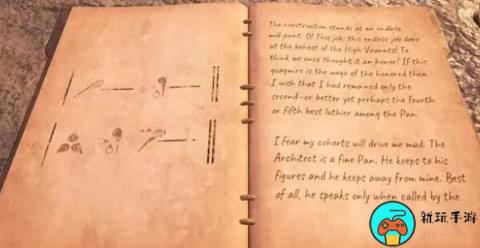 The construction stands at an endless
mid-point. O! This job, this endless job done
at the behest of the High Vaunnts! To
think we once thought it an honor! If this
quagmire is the wage of the honored then
I wish that I had remained only the
second-or better yet perhaps the fourth
or fifth best luthier among the Pan.
I fear my cohorts will drive me mad. The
Architect is a fine Pan. He keeps to his
figures and he keeps away from mine. Best
of all, he speaks only when called by the
就玩手游